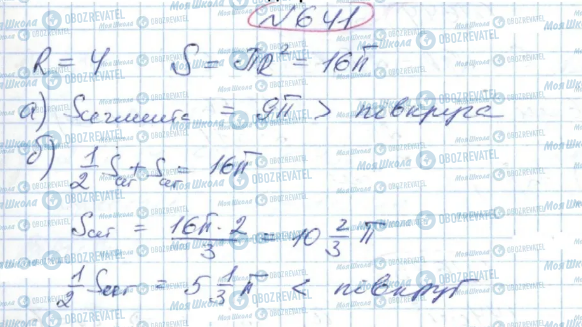 №641
R = 4 S = πR² = 16π
а) Sсегмента = 9π > півкруга
б) 1/2 Sсег + Sсег = 16π
Sсег = 16π·2/3 = 10 2/3 π
1/2 Sсег = 5 1/3 π < півкруг